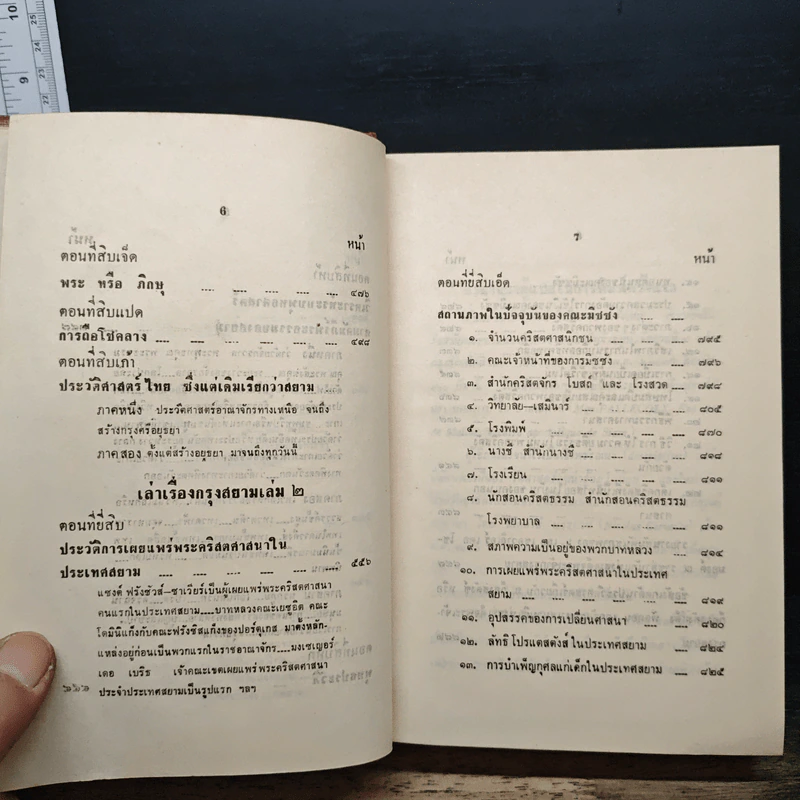 10
9
25
24
23
22
6
หน้า
ตอนที่สิบเจ็ด
พระ หรือ ภิกษุ .... .... .... .... ๔๗๖
ตอนที่สิบแปด
การถือโชคลาง .... .... .... .... ๔๙๘
ตอนที่สิบเก้า
ประวัติศาสตร์ไทย ซึ่งแต่เดิมเรียกว่าสยาม
ภาคหนึ่ง ประวัติศาสตร์อาณาจักรทางเหนือ จนถึง
สร้างกรุงศรีอยุธยา
ภาคสอง ตั้งแต่สร้างอยุธยา มาจนถึงทุกวันนี้
เล่าเรื่องกรุงสยามเล่ม ๒
ตอนที่ยี่สิบ
ประวัติการเผยแพร่พระคริสตศาสนาใน
ประเทศสยาม .... .... .... .... ๕๕๖
แซงต์ ฟรังซัวส์-ซาเวียร์เป็นผู้เผยแพร่พระคริสตศาสนา
คนแรกในประเทศสยาม....บาทหลวงคณะเยซูอิต คณะ
โดมินิแก็งกับคณะฟรังซิสแก็งของปอร์ตุเกส มาตั้งหลัก-
แหล่งอยู่ก่อนเป็นพวกแรกในราชอาณาจักร....มงเซเญอร์
เดอ เบริธ เจ้าคณะเขตเผยแพร่พระคริสตศาสนา
ประจำประเทศสยามเป็นรูปแรก ฯลฯ
7
หน้า
ตอนที่ยี่สิบเอ็ด
สถานภาพในปัจจุบันของคณะมิซซัง
๑. จำนวนคริสตศาสนิกชน .... .... ๗๙๕
๒. คณะเจ้าหน้าที่ของการมิซซัง .... .... ๗๙๖
๓. สำนักคริสตจักร โบสถ์ และ โรงสวด .... ๗๙๘
๔. วิทยาลัย-เสมินาร์ .... .... .... ๘๐๕
๕. โรงพิมพ์ .... .... .... .... ๘๗๐
๖. นางชี สำนักนางชี .... .... .... ๘๑๘
๗. โรงเรียน .... .... .... .... ๘๑๑
๘. นักสอนคริสตธรรม สำนักสอนคริสตธรรม
โรงพยาบาล .... .... .... .... ๘๑๑
๙. สภาพความเป็นอยู่ของพวกบาทหลวง .... ๘๑๔
๑๐. การเผยแพร่พระคริสตศาสนาในประเทศ
สยาม .... .... .... .... ๘๑๙
๑๑. อุปสรรคของการเปลี่ยนศาสนา .... .... ๘๒๐
๑๒. ลัทธิโปรแตสตังส์ในประเทศสยาม .... ๘๒๔
๑๓. การบำเพ็ญกุศลแก่เด็กในประเทศสยาม .... ๘๒๕